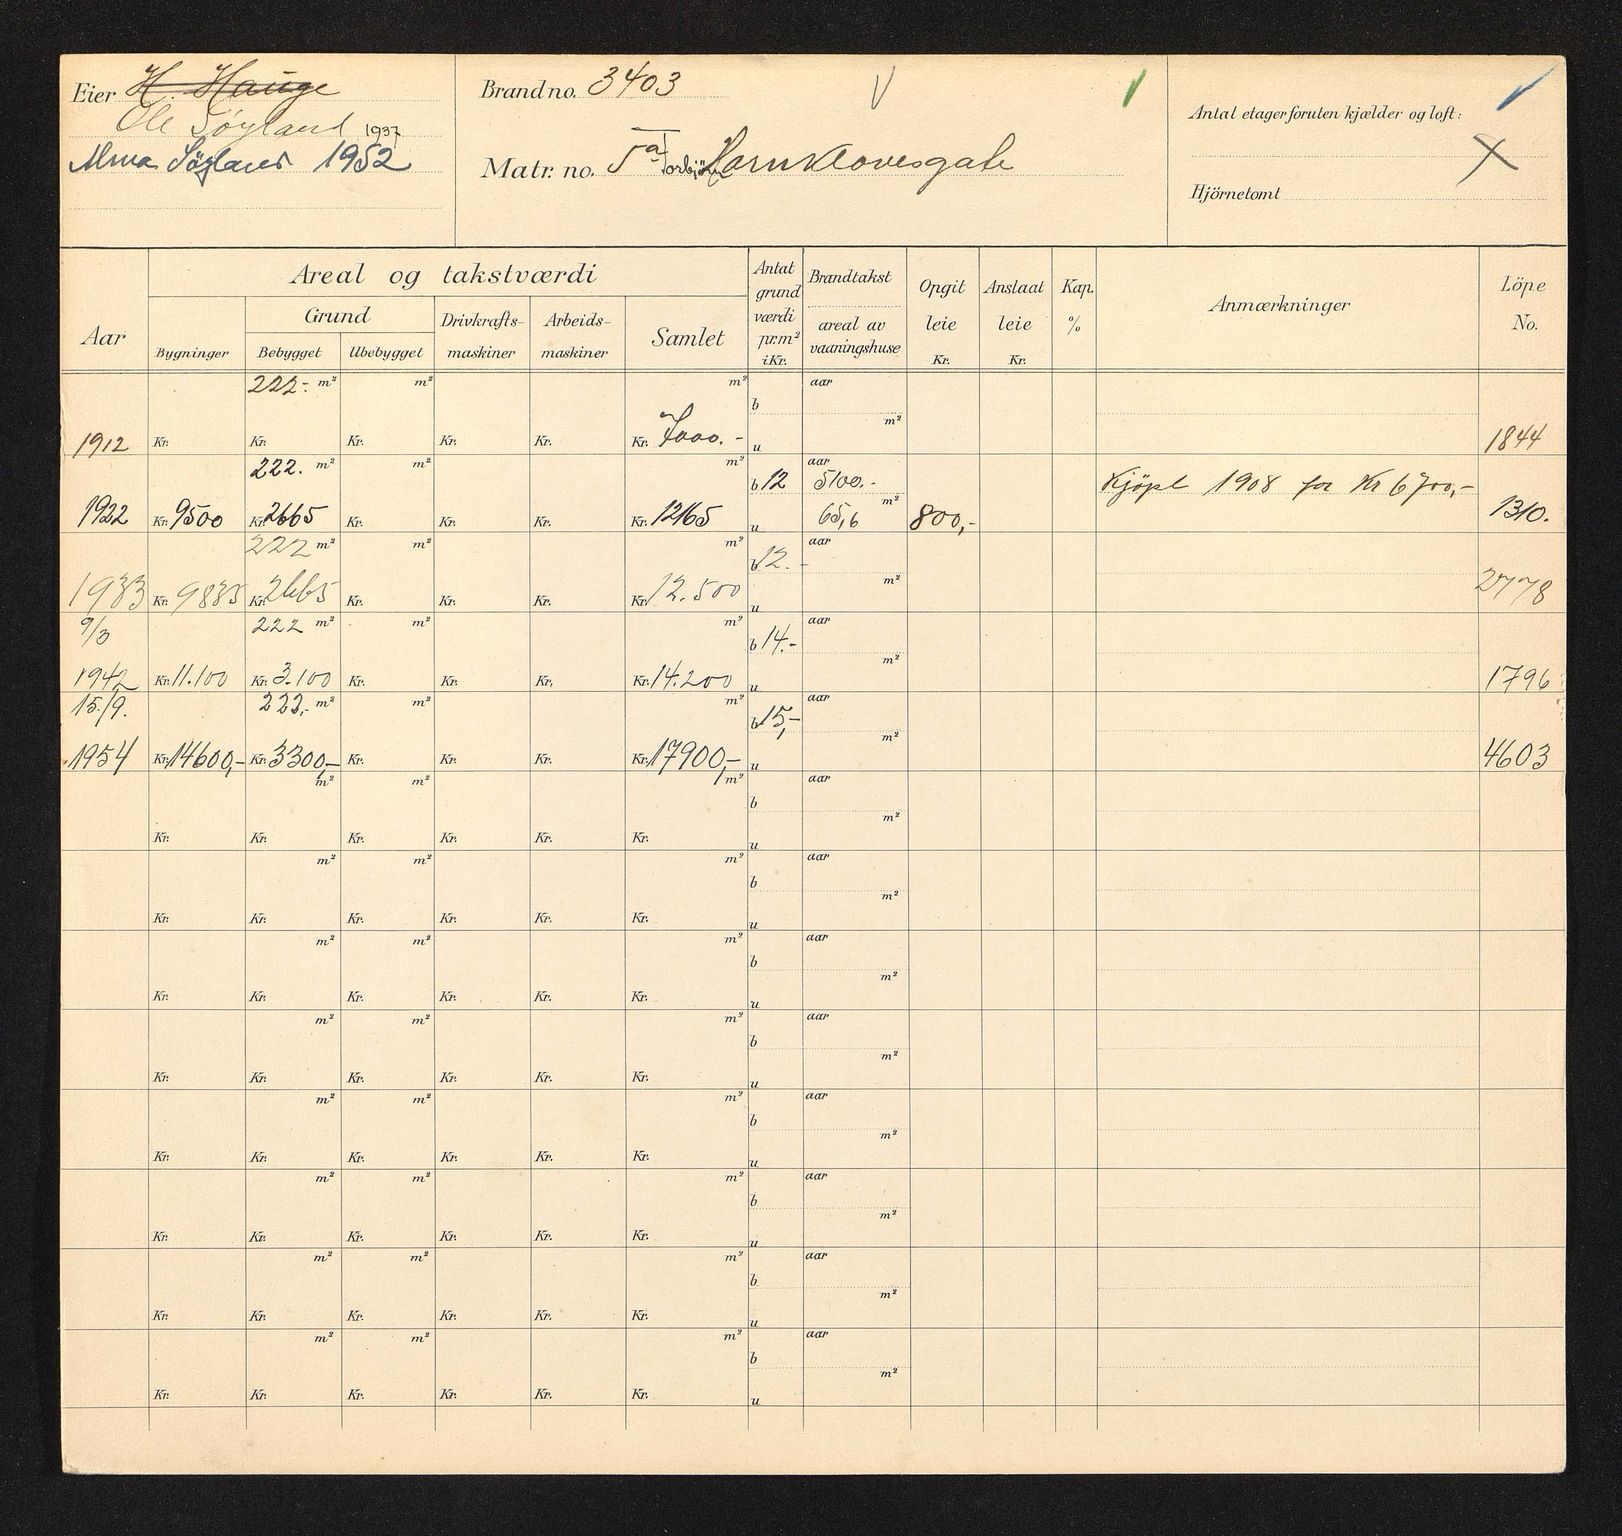 Eier H. Hauge
Ole Søyland 1937
Alma Søyland 1952
Brand no. 3403
Matr. no. 5a Torbjörn Hornkloves gate
Antal etager foruten kjælder og loft:
X
Hjörnetomt
Areal og takstværdi
Aar
Bygninger
Grund
Bebygget Ubebygget
Drivkrafts-
maskiner
Arbeids-
maskiner
Samlet
Antat
grund
værdi
pr. m²
i Kr.
Brandtakst
areal av
vaaningshuse
Opgit
leie
Kr.
Anslaat
leie
Kr.
Kap.
%
Anmærkninger
Löpe
No.
222.- m² m² m² aar
b
m²
1912 Kr. Kr. Kr. Kr. Kr. Kr. 7000.- u 1844
222. m² m² m² b 12 aar 5100.- Kjöpt 1908 for Kr 6700,-
1922 Kr. 9500 Kr. 2665 Kr. Kr. Kr. Kr. 12165 u 65,6 m² 800,- 1310.
222 m² m² m² b 12.- aar
m²
1933 Kr. 9835 Kr. 2665 Kr. Kr. Kr. Kr. 12.500 u 2778
9/3 222 m² m² m² b 14.- aar
m²
1942 Kr. 11.100 Kr. 3.100 Kr. Kr. Kr. Kr. 14.200 u 1796
15/9. 222,- m² m² m² b 15,- aar
m²
1954 Kr. 14600,- Kr. 3300,- Kr. Kr. Kr. Kr. 17900,- u 4603
m² m² m² aar
b
m²
Kr. Kr. Kr. Kr. Kr. Kr. u
m² m² m² aar
b
m²
Kr. Kr. Kr. Kr. Kr. Kr. u
m² m² m² aar
b
m²
Kr. Kr. Kr. Kr. Kr. Kr. u
m² m² m² aar
b
m²
Kr. Kr. Kr. Kr. Kr. Kr. u
m² m² m² aar
b
m²
Kr. Kr. Kr. Kr. Kr. Kr. u
m² m² m² aar
b
m²
Kr. Kr. Kr. Kr. Kr. Kr. u
m² m² m² aar
b
m²
Kr. Kr. Kr. Kr. Kr. Kr. u
m² m² m² aar
b
m²
Kr. Kr. Kr. Kr. Kr. Kr. u